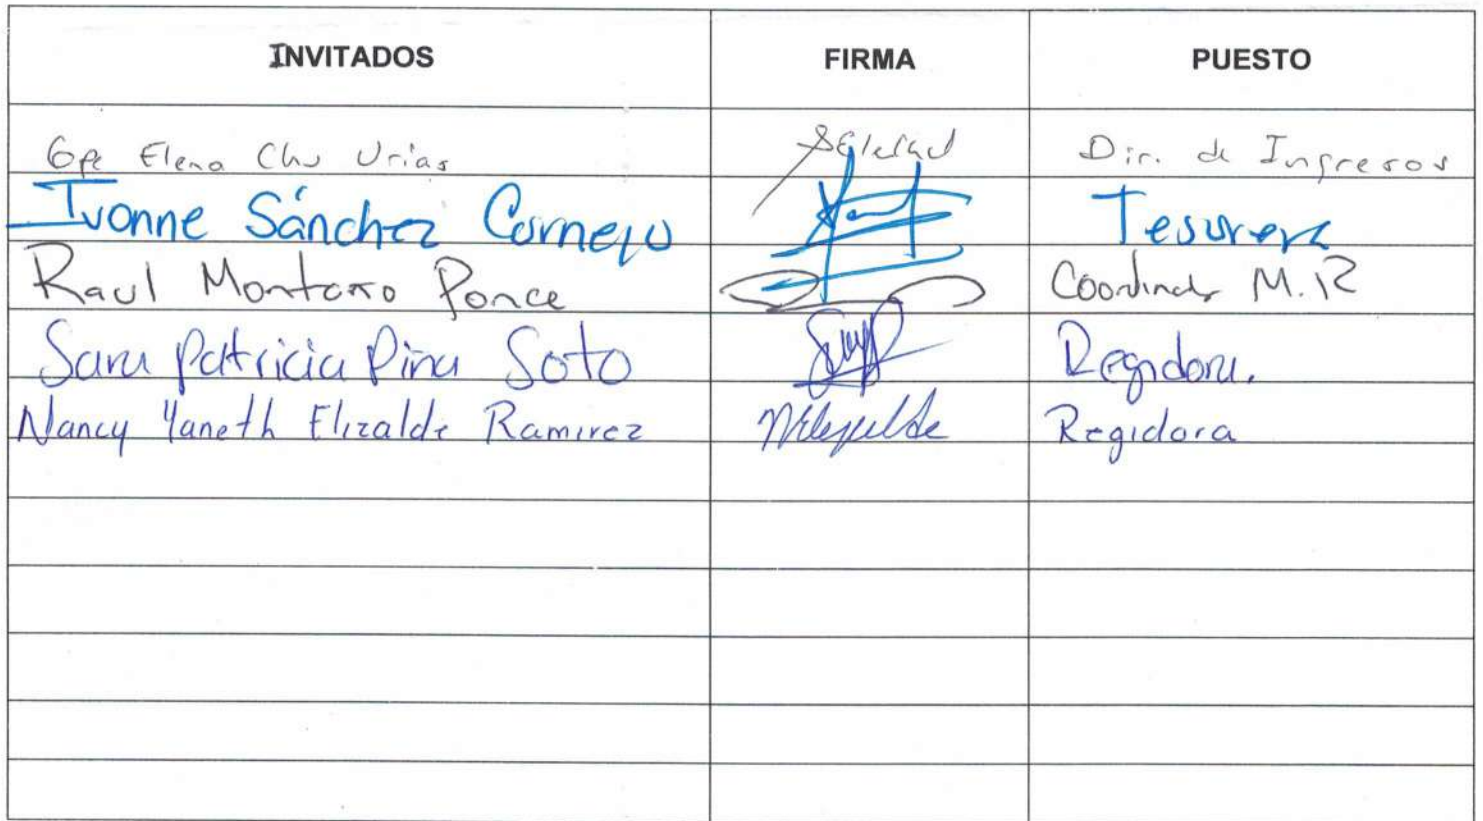 INVITADOS FIRMA PUESTO
Gpe Elena Chu Urias Dir. de Ingresos
Ivonne Sánchez Cornejo Tesorera
Raul Ponce Coordinador M.R
Sara Patricia Piña Soto Regidora.
Nancy Yaneth Elizalde Ramirez Regidora